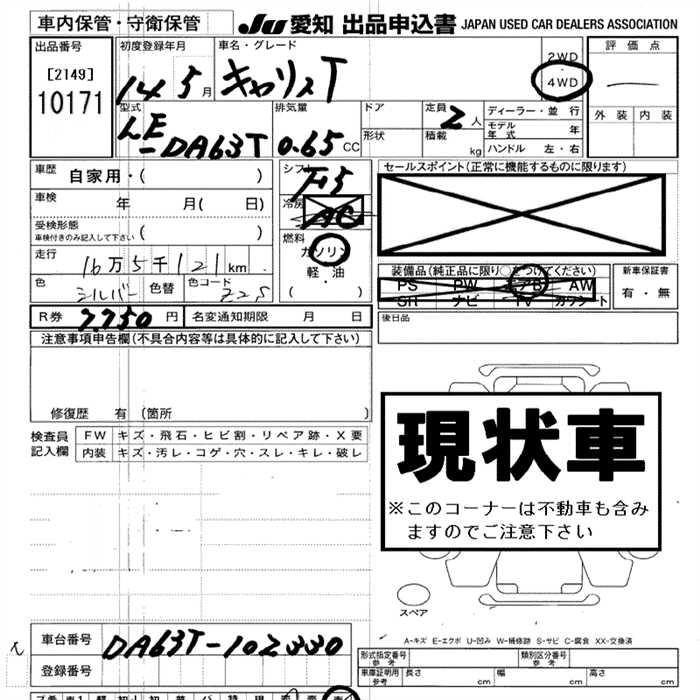 車内保管・守衛保管 JU 愛知 出品申込書 JAPAN USED CAR DEALERS ASSOCIATION
出品番号 初度登録年月 車名・グレード 2WD ・ 4WD 評価点
[2149]
10171
14 5月
外装 内装
型式 排気量 ドア 定員 2人 ディーラー・並行
LE-DA63T 0.65CC 形状 積載 kg モデル年式 年
ハンドル 左・右
車歴 自家用・( ) シフト F5 セールスポイント(正常に機能するものに限ります)
車検 年 月( 日) 冷房 AC
受検形態 車検付きのみ記入して下さい ( ) 燃料 ガソリン
走行 16万5千121km 軽・油
装備品(純正品に限り○をつけてください) 新車保証書
色 シルバー 色替 色コード Z2S ( ) PS PW エアB AW 有・無
SH ナビ TV カワシート
R券 7,750円 名変通知期限 月 日 後日品
注意事項申告欄(不具合内容等は具体的に記入して下さい)
修復歴 有 (箇所 )
検査員記入欄 FW キズ・飛石・ヒビ割・リペア跡・X要
内装 キズ・汚レ・コゲ・穴・スレ・キレ・破レ
現状車
※このコーナーは不動車も含み
ますのでご注意下さい
スペア
A-キズ E-エクボ U-凹み W-補修跡 S-サビ C-腐食 XX-交換済
車台番号 DA63T-102330
登録番号
型式指定番号 参考 類別区分番号 参考
車庫証明用 参考 長さ cm 幅 cm 高さ cm